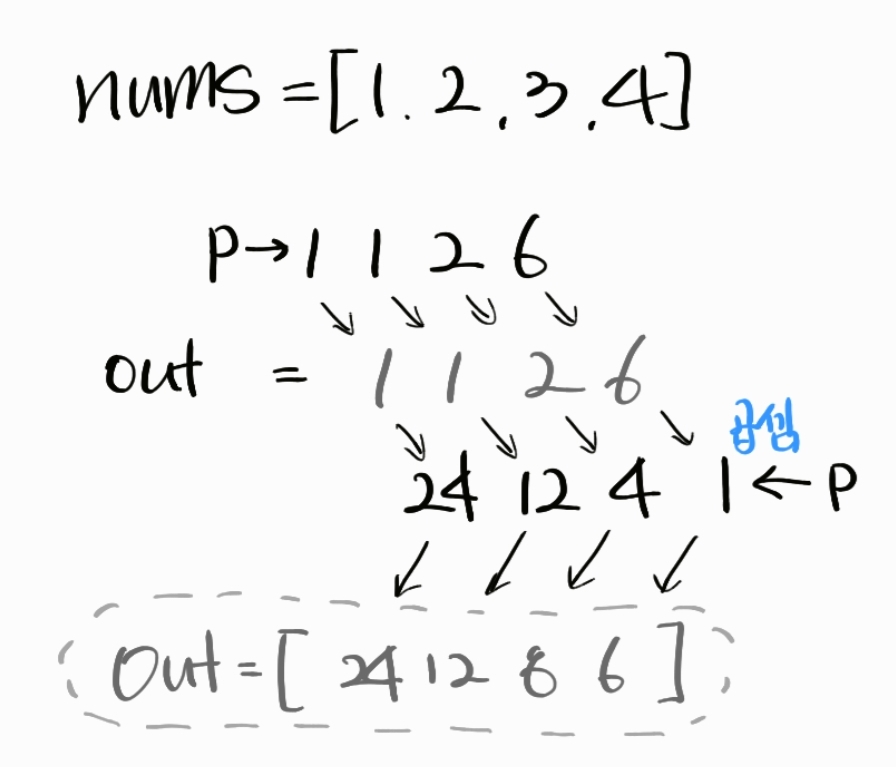 nums = [1. 2, 3, 4]
P→ 1 1 2 6
out = 1 1 2 6
곱셈
24 12 4 1 ← P
Out = [ 24 12 8 6 ]